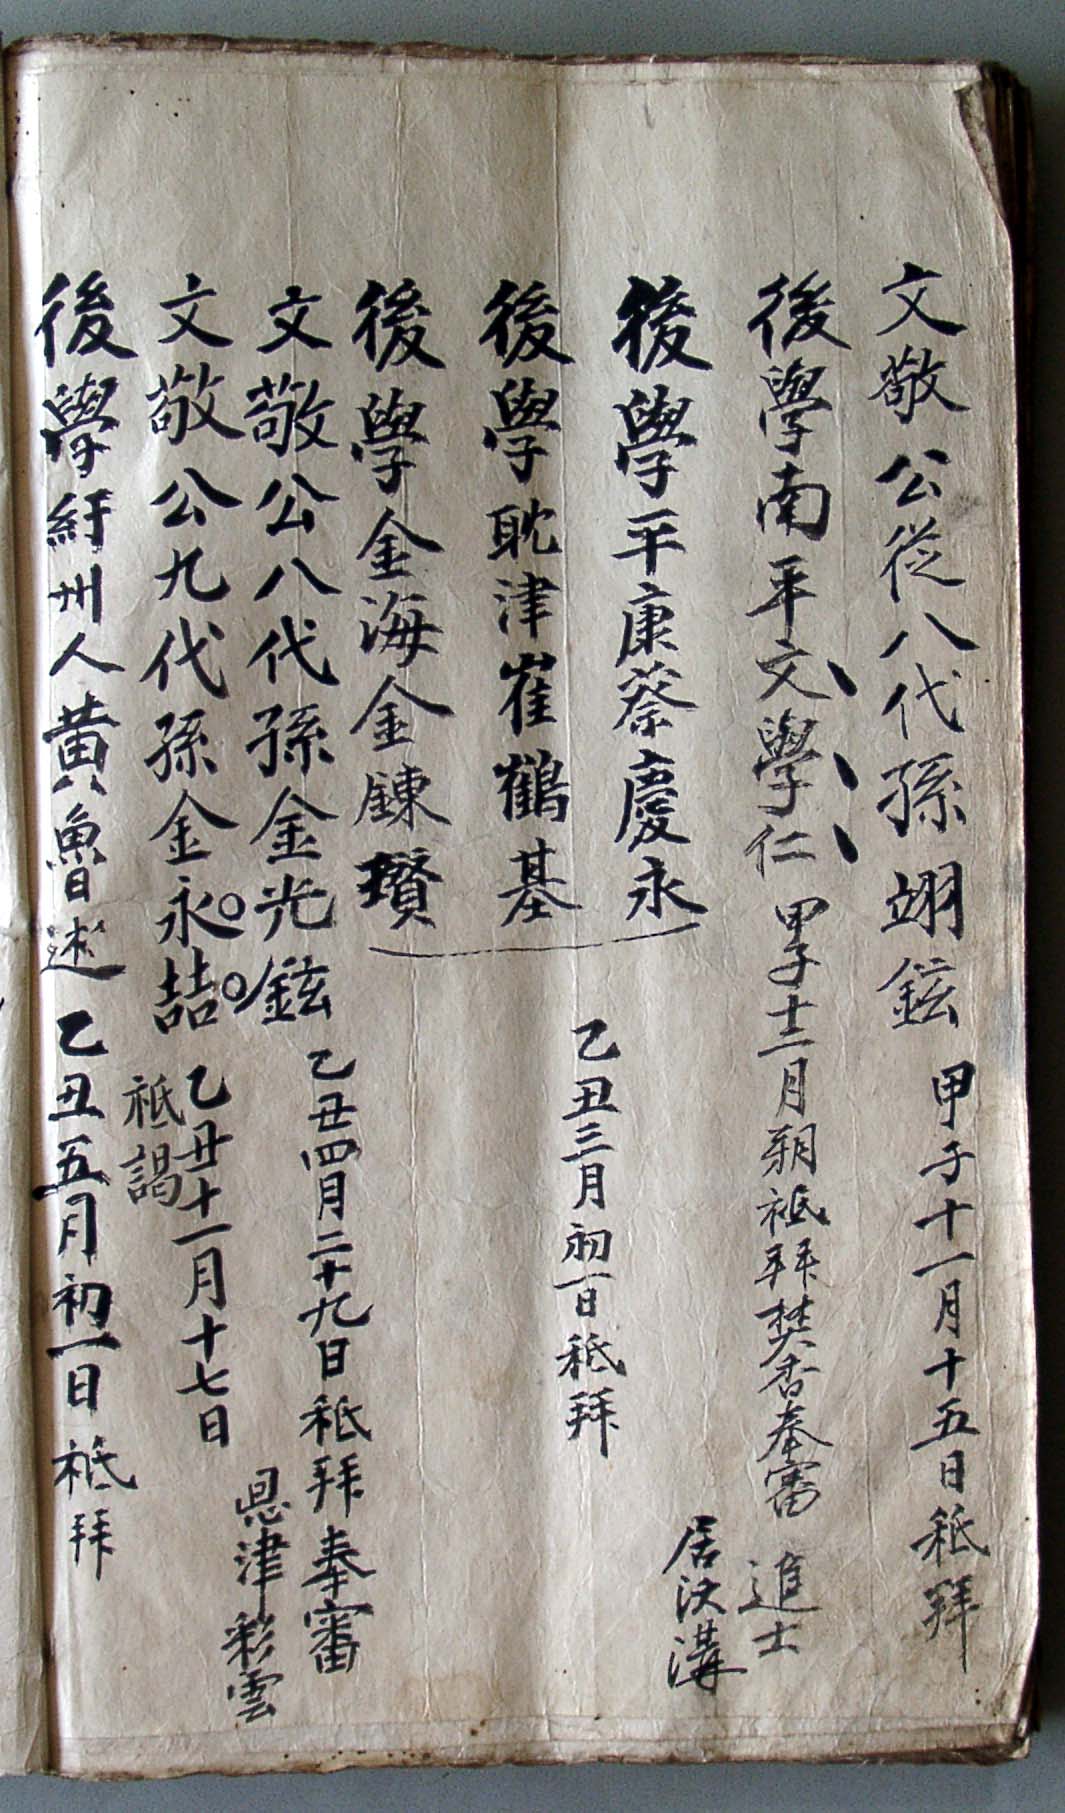 文敬公從八代孫翊鉉 甲子十一月十五日祗拜
後學南平文學仁 甲子十二月朔祗拜焚香奉審 進士
居汶溝
後學平康蔡慶永
後學耽津崔鶴基 乙丑三月初一日祗拜
後學金海金鍊瓚
文敬公八代孫金光鉉 乙丑四月二十九日祗拜奉審
恩津彩雲
文敬公九代孫金永喆 乙丑十一月十七日
祗謁
後學紆州人黃魯述 乙丑五月初一日祗拜